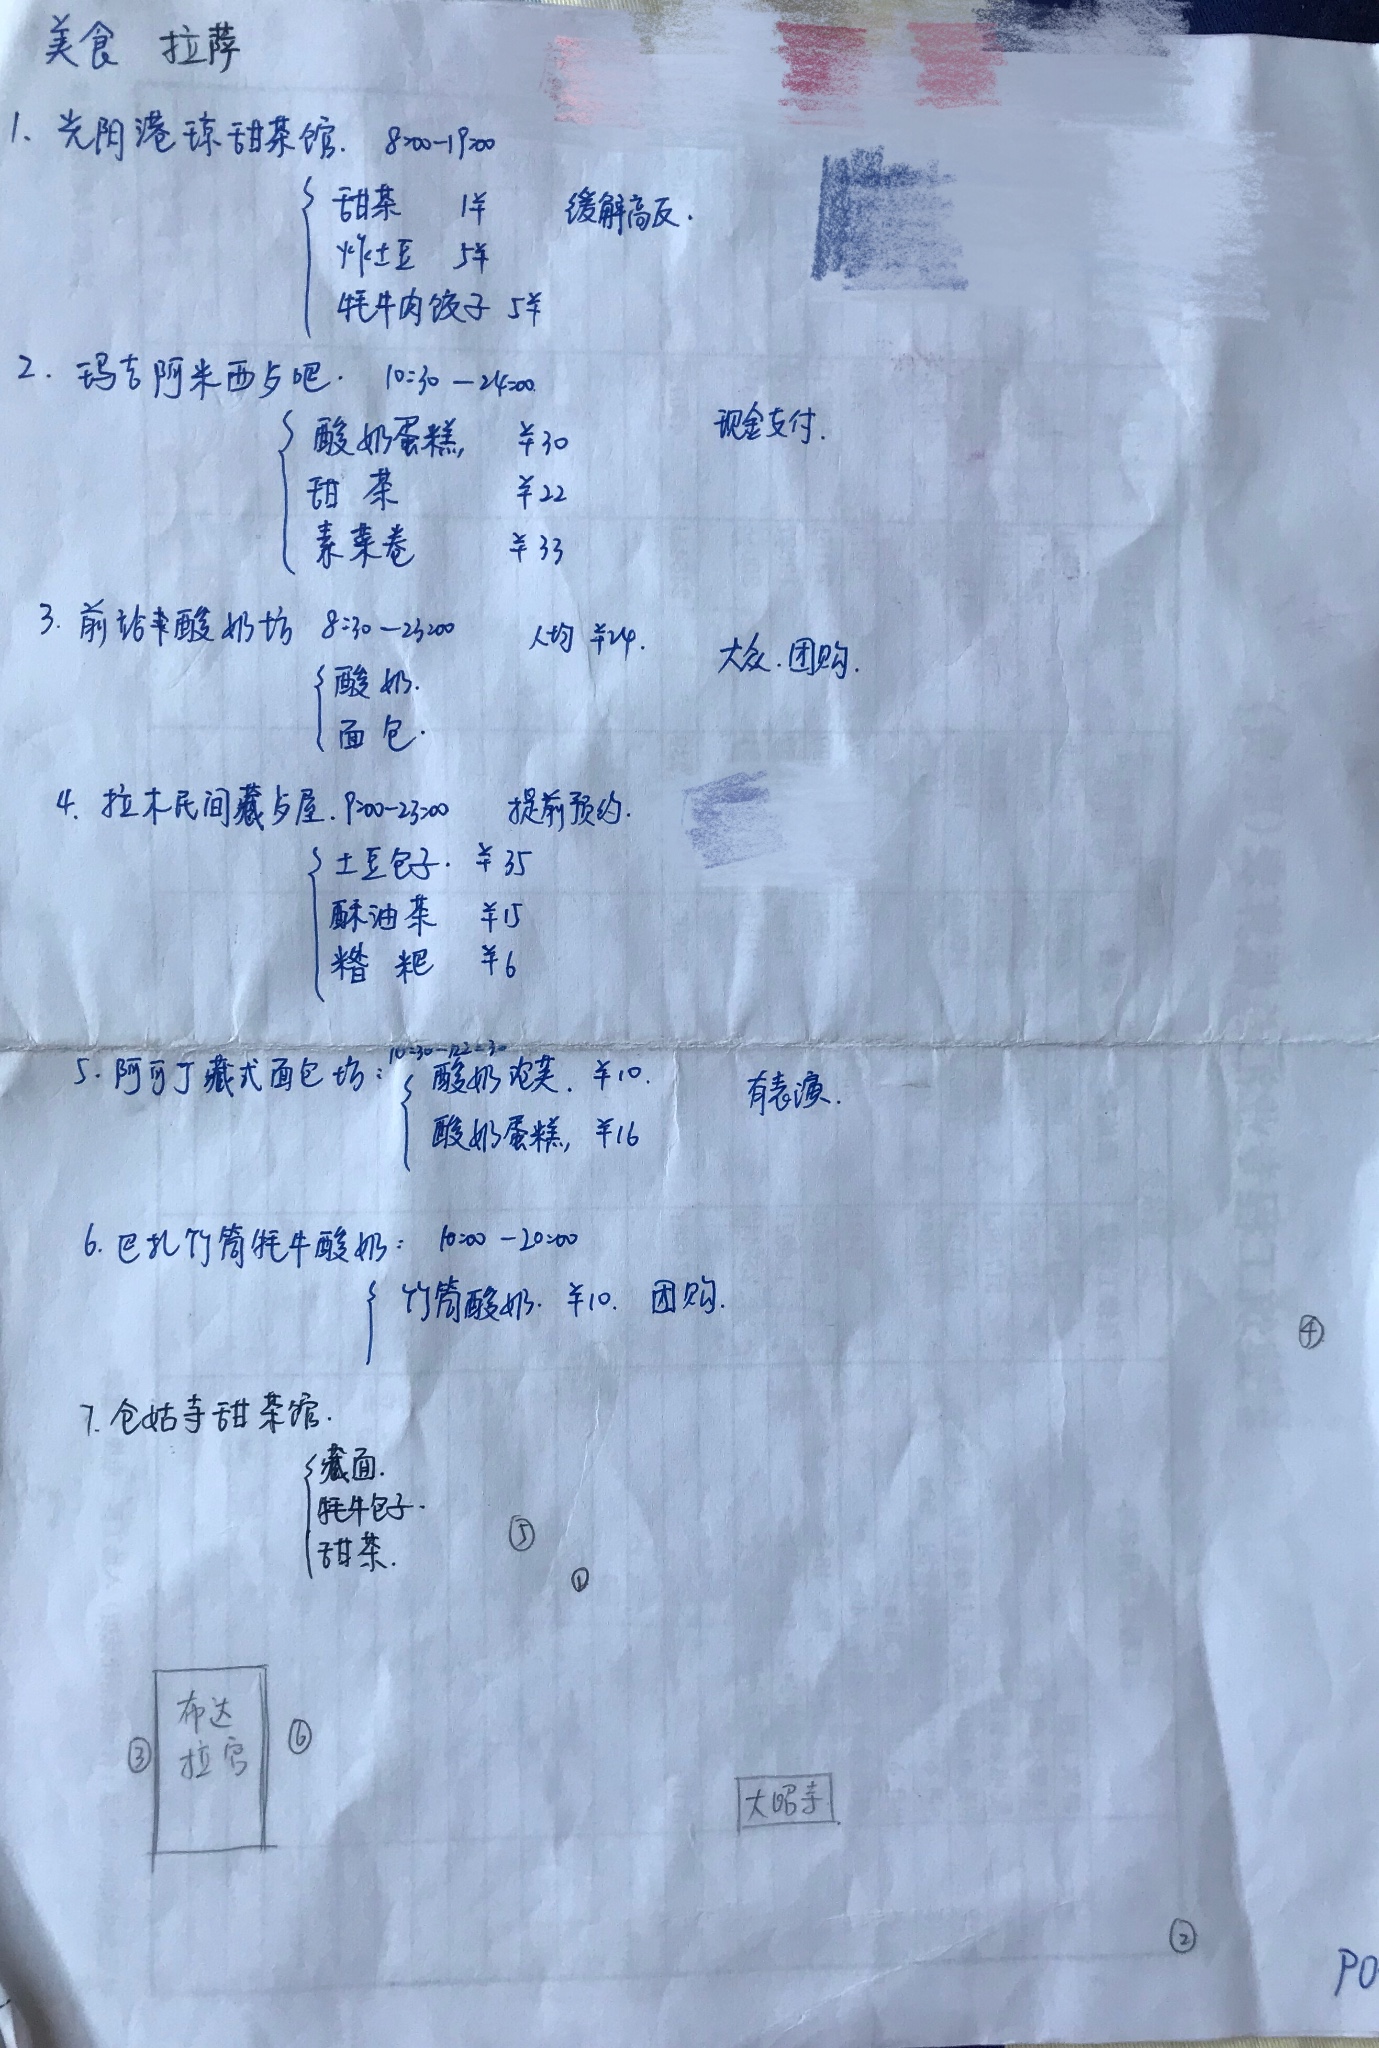 美食 拉萨
1、光阴港琼甜茶馆. 8:00-19:00
甜茶 1¥ 缓解高反.
炸土豆 5¥
牦牛肉饺子 5¥
2. 玛吉阿米西歺吧. 10:30-24:00
现金支付.
酸奶蛋糕, ¥30
甜茶 ¥22
素菜卷 ¥33
3. 前站来酸奶坊 8:30-23:00 人均 ¥24. 大众.团购.
酸奶.
面包.
4. 拉木民间藏歺屋. 9:00-23:00 提前预约.
土豆包子. ¥35
酥油茶 ¥15
糌粑 ¥6
5. 阿可丁藏式面包坊: 10:30-22:30
酸奶泡芙. ¥10. 有表演.
酸奶蛋糕, ¥16
6. 巴扎竹筒牦牛酸奶: 10:00-20:00
竹筒酸奶. ¥10. 团购.
④
7. 仓姑寺甜茶馆.
藏面.
牦牛包子.
甜茶.
⑤
①
布达
拉宫
③
⑥
大昭寺
②
PO